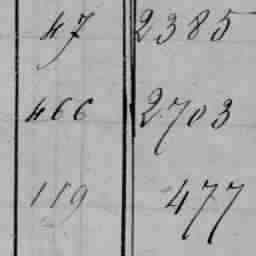 47 2385
466 2703
119 477